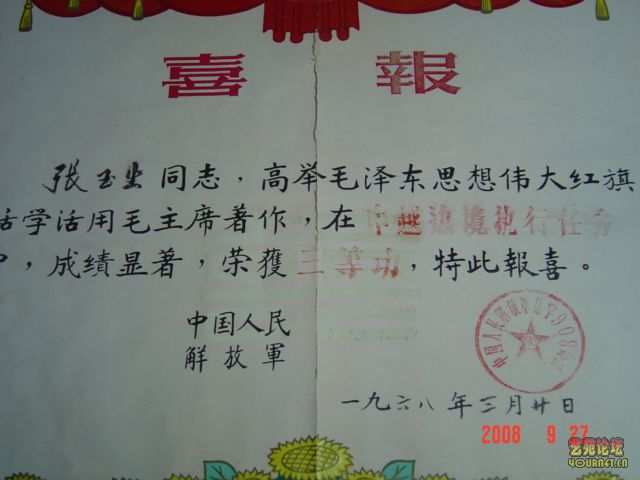 喜報
张玉生同志，高举毛泽东思想伟大红旗
活学活用毛主席著作，在中越边境执行任务
中，成绩显著，荣獲三等功，特此報喜。
中国人民
解放軍
中国人民解放军
一九六八年三月廿日
2008 9 27
艺苑论坛
4YOURNET.CN